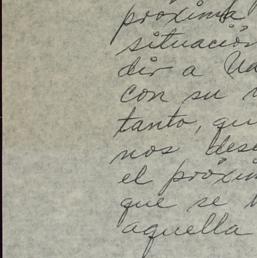 próxima
situación
dir a Ud
con su
tanto, qu
nos des
el próxim
que se
aquella